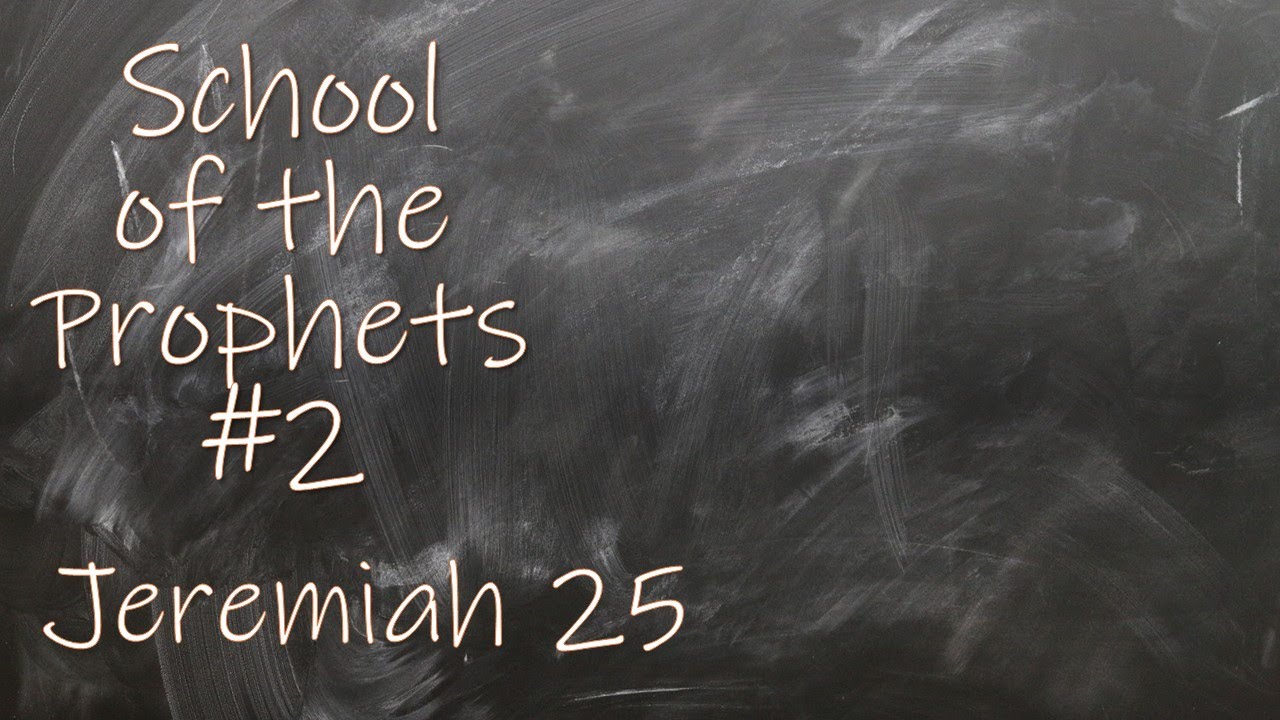 School
of the
Prophets
#2
Jeremiah 25